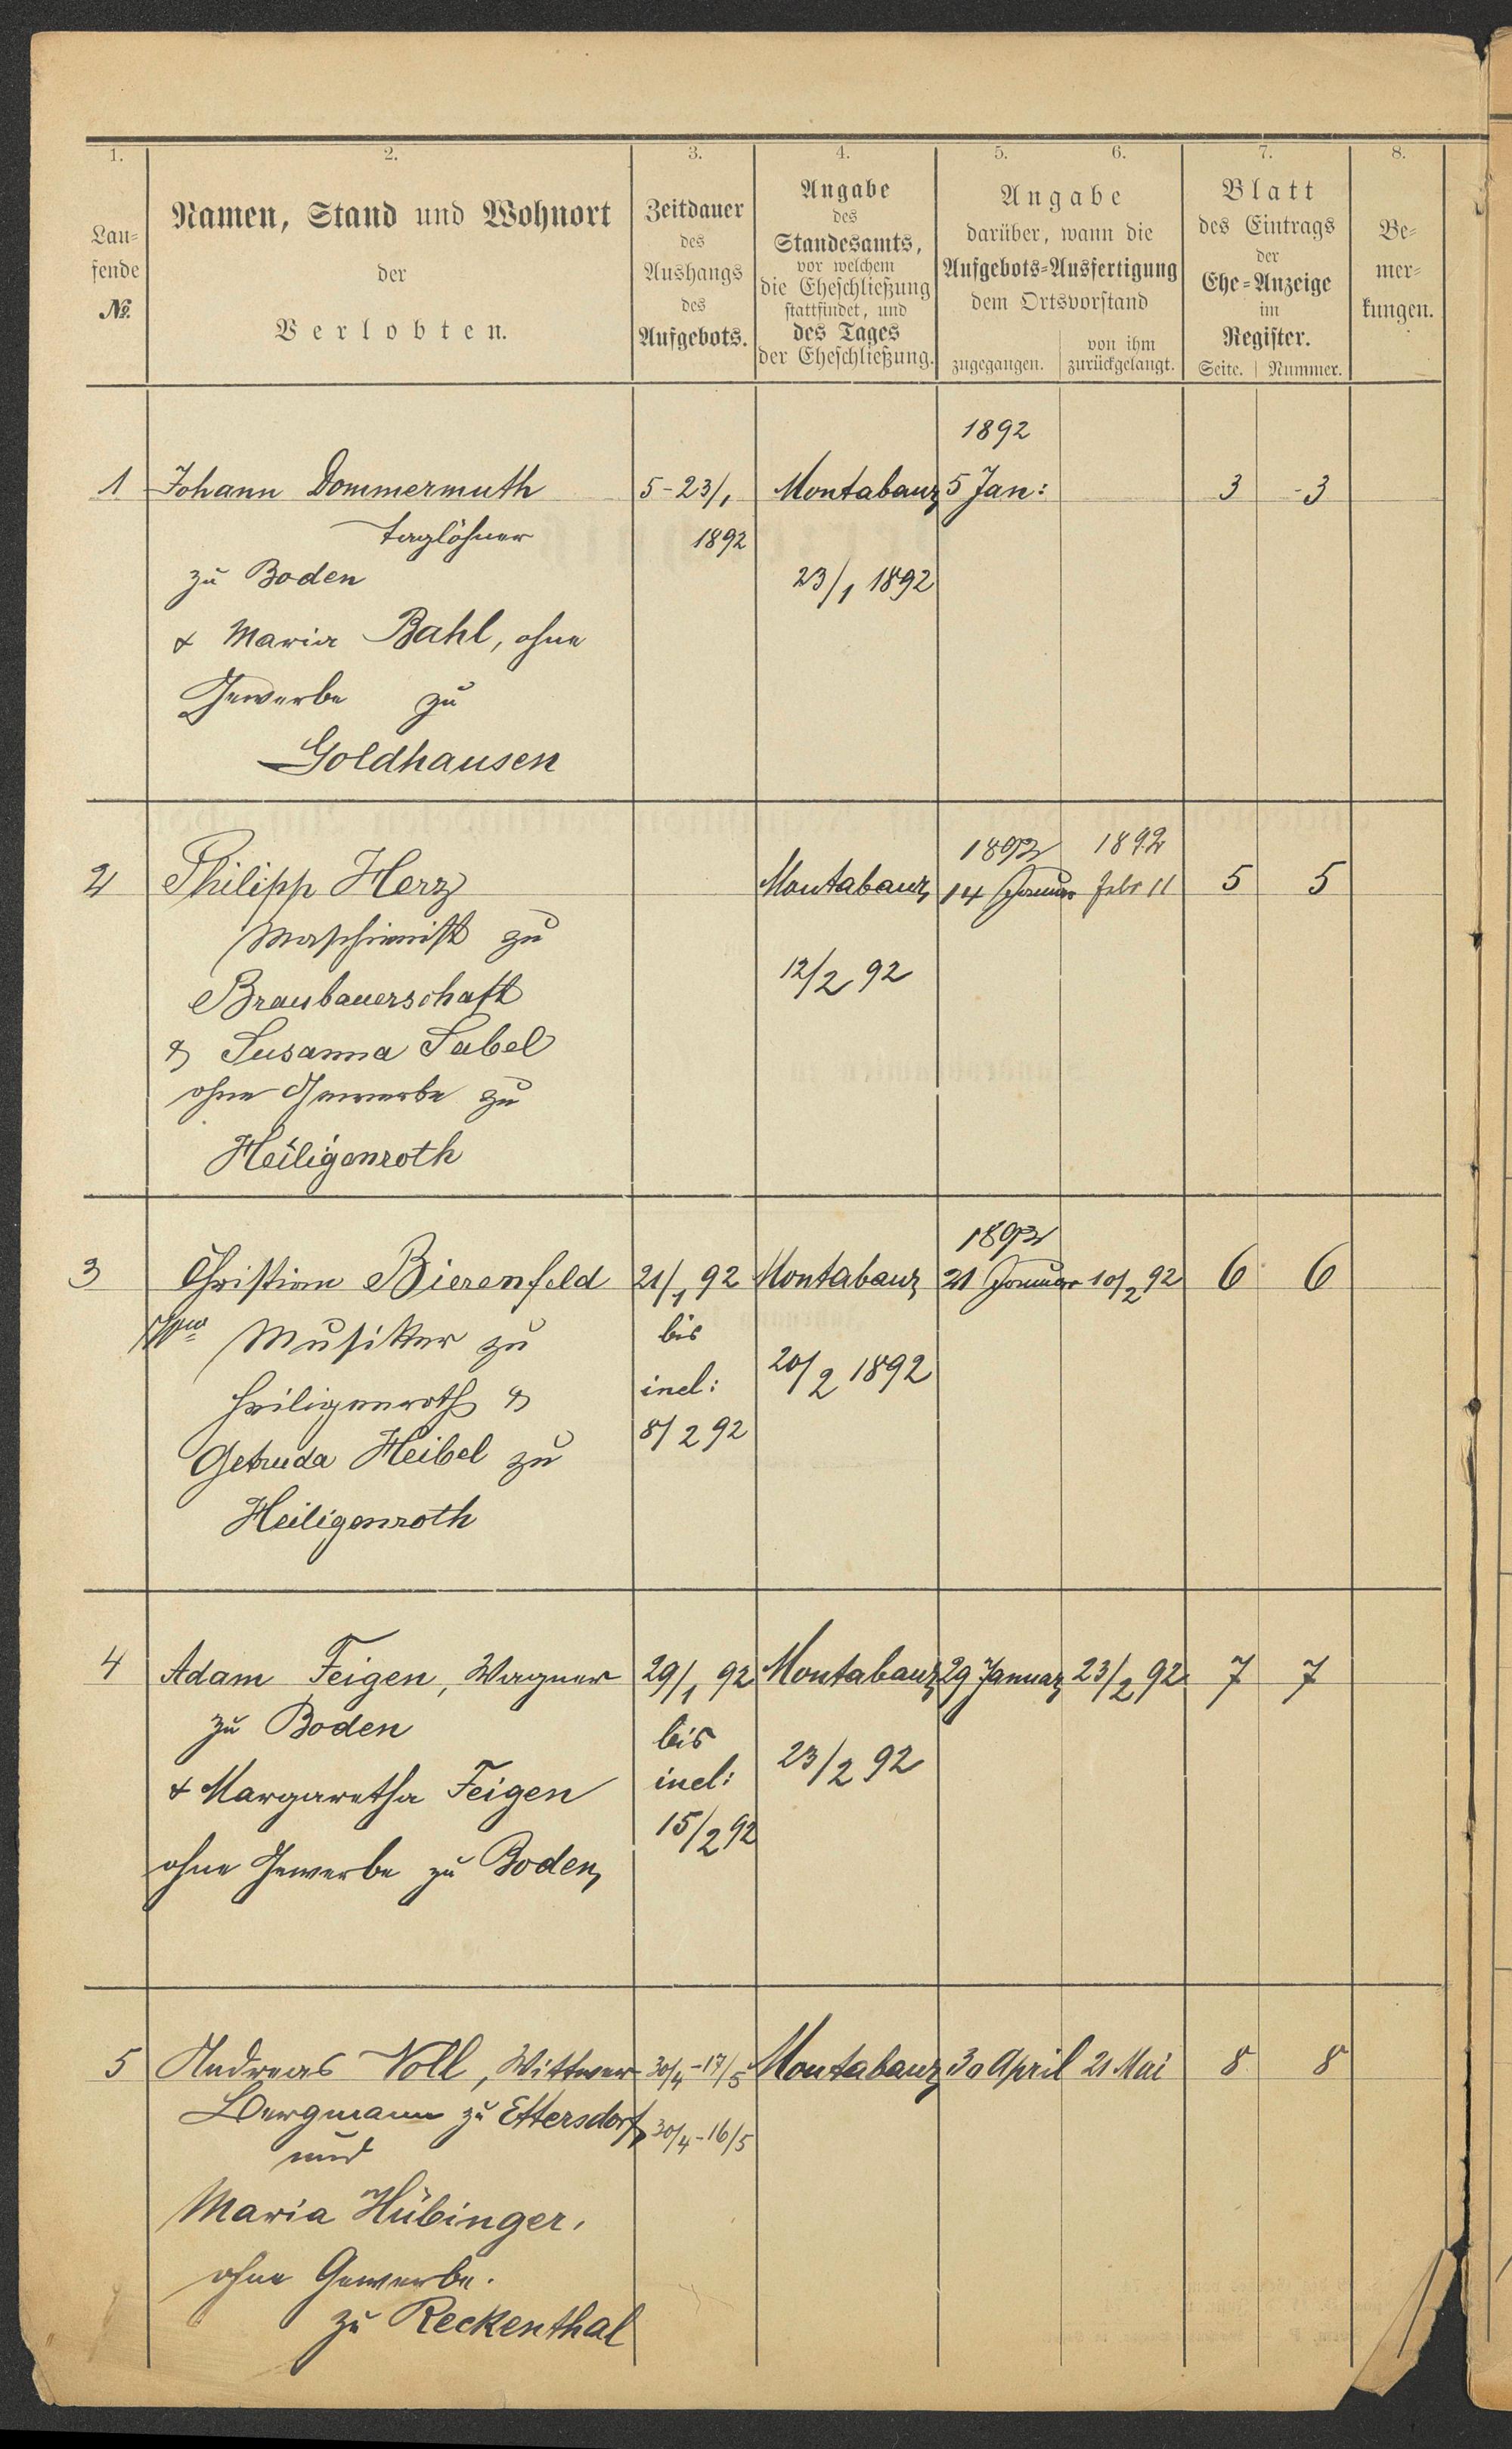 1. 2. 3. 4. 5. 6. 7. 8.
Lau=
fende
No.
Namen, Stand und Wohnort
der
Verlobten.
Zeitdauer
des
Aushangs
des
Aufgebots.
Angabe
des
Standesamts,
vor welchem
die Eheschließung
stattfindet, und
des Tages
der Eheschließung.
Angabe
darüber, wann die
Aufgebots=Ausfertigung
dem Ortsvorstand
zugegangen.
von ihm
zurückgelangt.
Blatt
des Eintrags
der
Ehe=Anzeige
im
Register.
Seite. Nummer.
Be=
mer=
kungen.
1892
1 Johann Dommermuth 5-23/1 Montabaur 5 Jan: 3 -3
Taglöhner 1892
zu Boden 23/1 1892
& Maria Bahl, ohne
Gewerbe zu
Goldhausen
1892 1892
2 Philipp Herz Montabaur 14 Januar Febr 11 5 5
Maschinist zu
Braubauerschaft 12/2 92
& Susanna Sabel
ohne Gewerbe zu
Heiligenroth
1892
3 Christian Bierenfeld 21/1 92 Montabaur 21 Januar 10/2 92 6 6
Musiker zu bis
Heiligenroth & incl: 20/2 1892
Getruda Heibel zu 8/2 92
Heiligenroth
4 Adam Feigen, Wagner 29/1 92 Montabaur 29 Januar 23/2 92 7 7
zu Boden bis
& Margaretha Feigen incl: 23/2 92
ohne Gewerbe zu Boden 15/2 92
5 Andreas Noll, Wittwer 30/4-17/5 Montabaur 30 April 21 Mai 8 8
Bergmann zu Ettersdorf 30/4-16/5
und
Maria Hübinger,
ohne Gewerbe.
zu Reckenthal